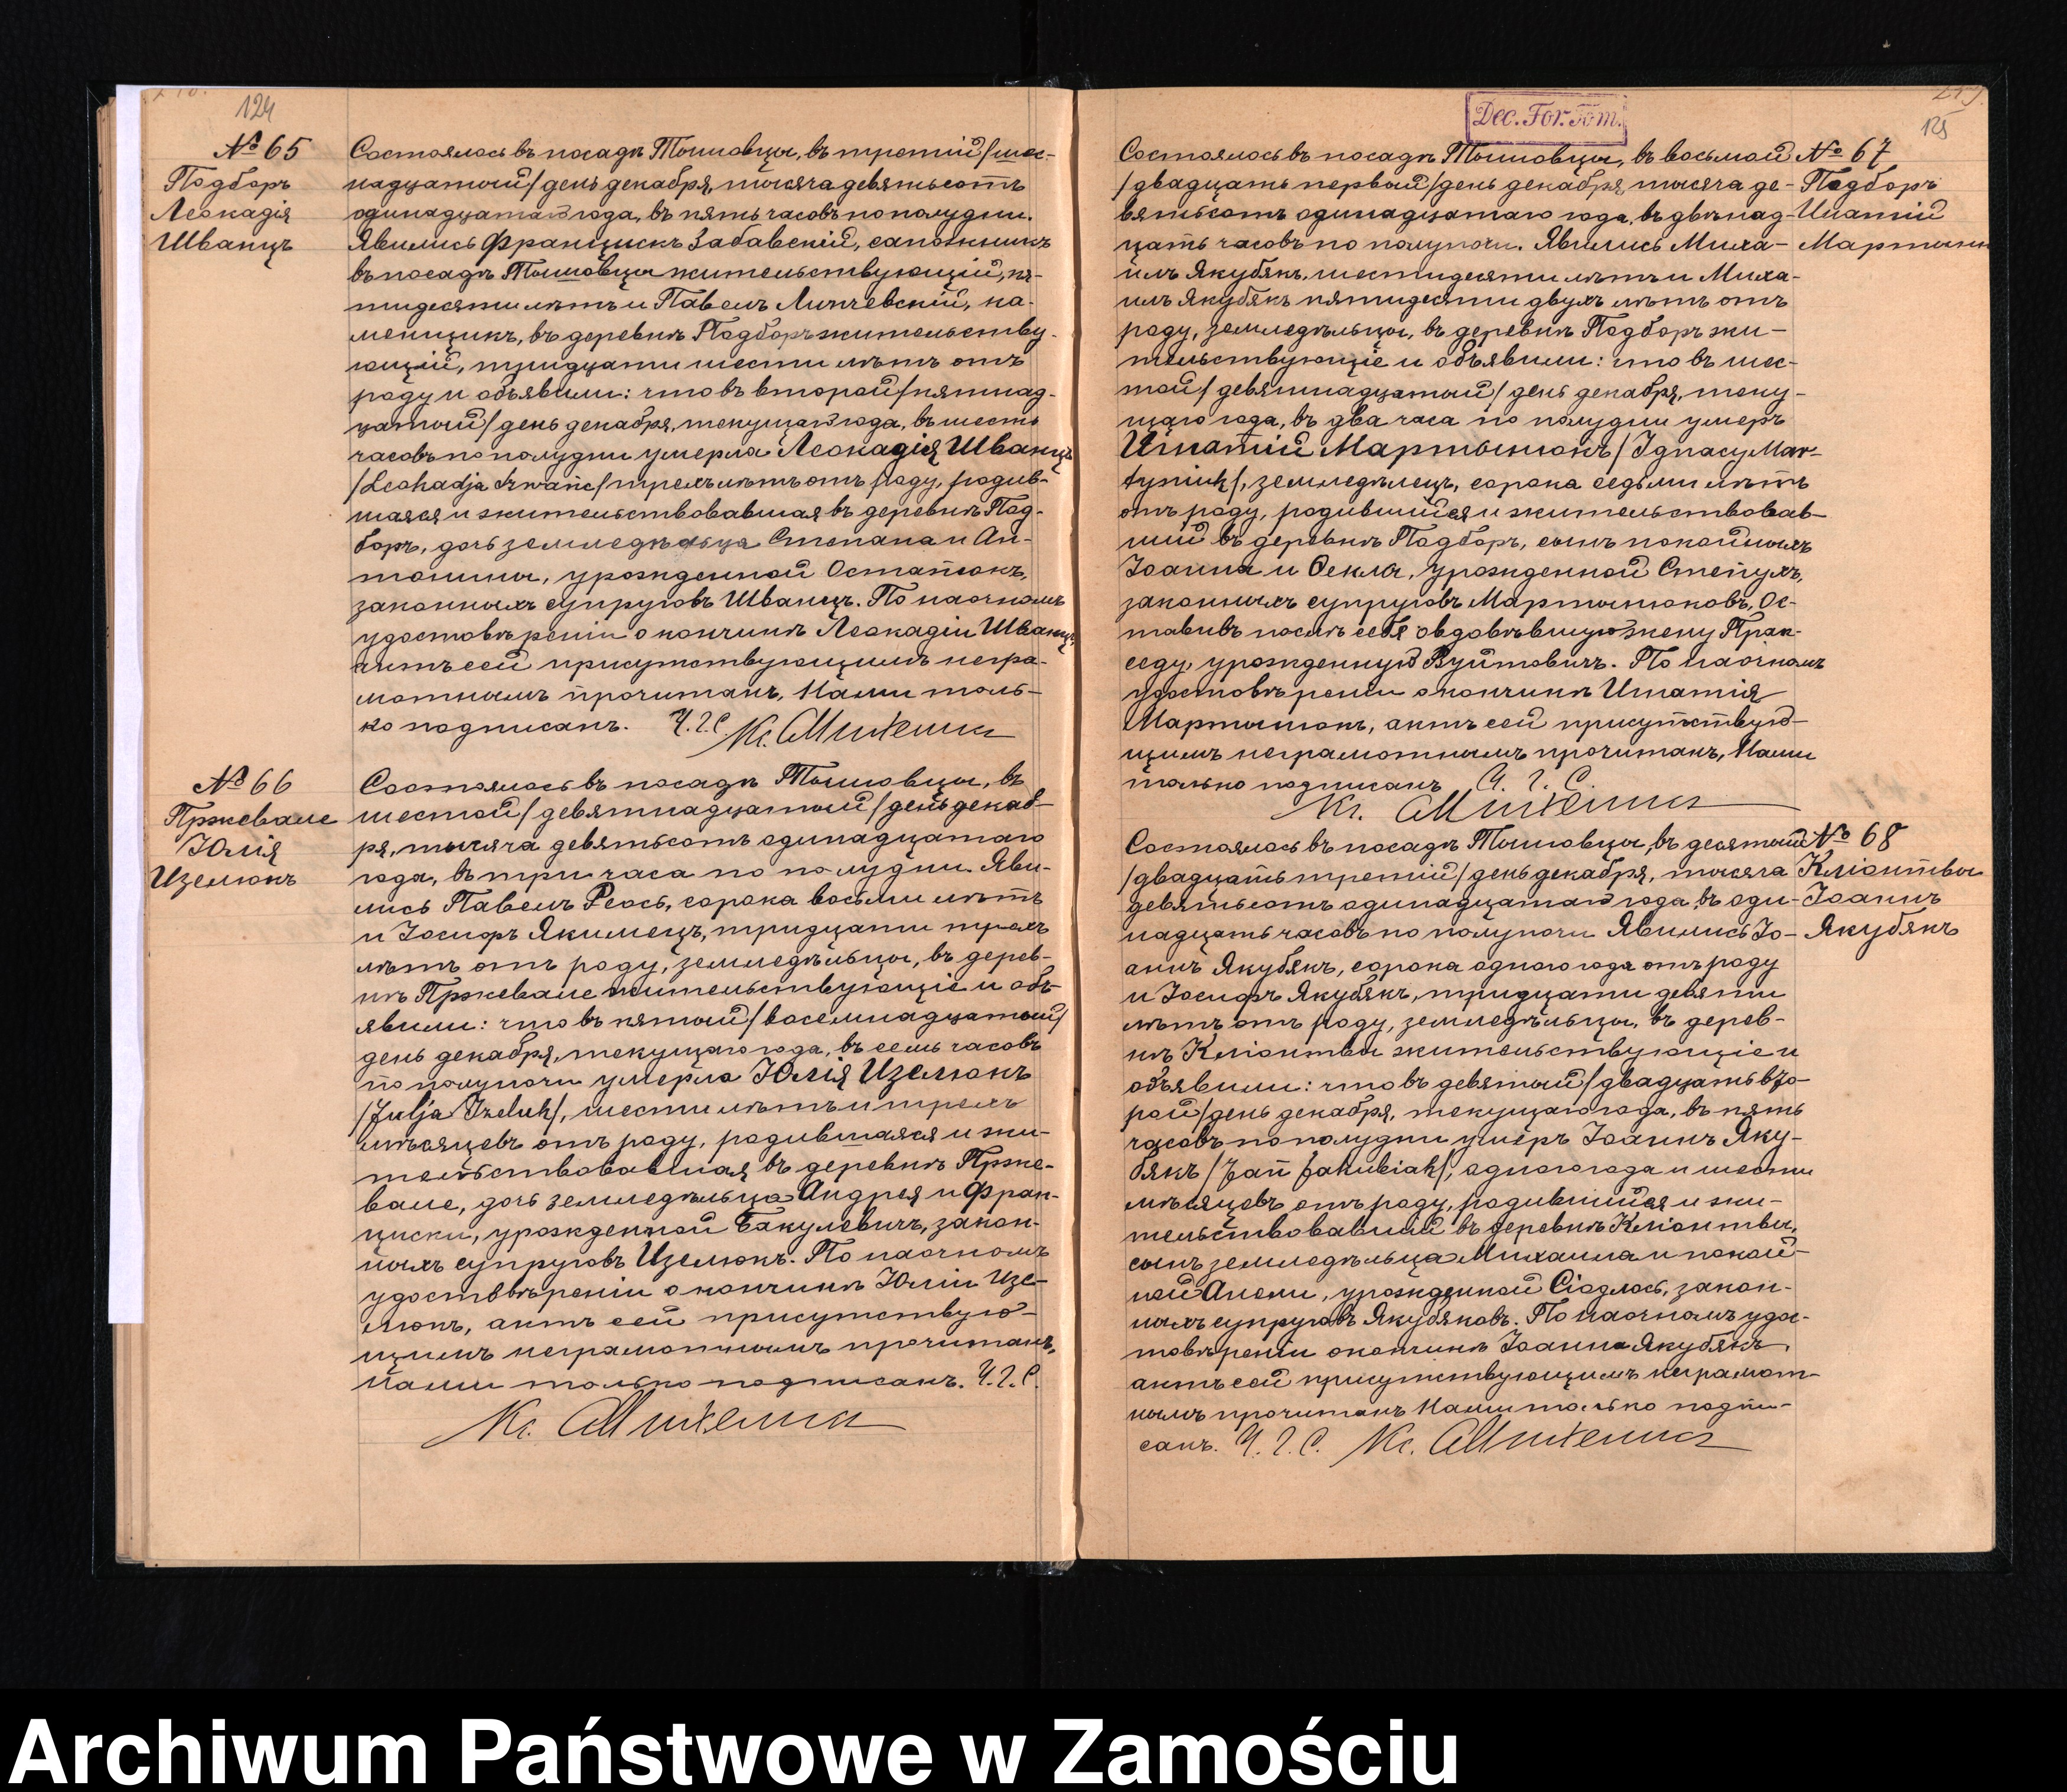 124
№ 65
Подборъ
Леокадія
Шванцъ
Состоялось въ посадѣ Тышовцы, въ третій /шес-
надцатый/ день декабря, тысяча девятьсотъ
одинадцатаго года, въ пять часовъ по полудни.
Явились Францискъ Забавскій, сапожникъ
въ посадѣ Тышовцы жительствующій, пя-
тидесяти лѣтъ и Павелъ Личевскій, ка-
менщикъ, въ деревнѣ Подборъ жительству-
ющій, тридцати шести лѣтъ отъ
роду и объявили: что въ второй /пятнад-
цатый/ день декабря, текущаго года, въ шесть
часовъ по полудни умерла Леокадія Шванцъ
/Leokadja Szwańc/ трехъ лѣтъ отъ роду, родив-
шаяся и жительствовавшая въ деревнѣ Под-
боръ, дочь земледѣльца Степана и Ан-
тонины, урожденной Остапюкъ,
законныхъ супруговъ Шванцъ. По наочномъ
удостовѣреніи о кончинѣ Леокадіи Шванцъ,
актъ сей присутствующимъ негра-
мотнымъ прочитанъ, Нами толь-
ко подписанъ. Ч.Г.С.
№ 66
Пржевале
Юлія
Изелюкъ
Состоялось въ посадѣ Тышовцы, въ
шестой /девятнадцатый/ день декаб-
ря, тысяча девятьсотъ одинадцатаго
года, въ три часа по полудни. Яви-
лись Павелъ Реось, сорока восьми лѣтъ
и Іосифъ Якимецъ, тридцати трехъ
лѣтъ отъ роду, земледѣльцы, въ дерев-
нѣ Пржевале жительствующіе и объ-
явили: что въ пятый /восемнадцатый/
день декабря, текущаго года, въ семь часовъ
по полуночи умерла Юлія Изелюкъ
/Julja Izeluk/, шести лѣтъ и трехъ
мѣсяцевъ отъ роду, родившаяся и жи-
тельствовавшая въ деревнѣ Прже-
вале, дочь земледѣльца Андрея и Фран-
циски, урожденной Бакулевичъ, закон-
ныхъ супруговъ Изелюкъ. По наочномъ
удостовѣреніи о кончинѣ Юліи Изе-
люкъ, актъ сей присутствую-
щимъ неграмотнымъ прочитанъ,
Нами только подписанъ. Ч.Г.С.
Dec. For. Tom.
125
№ 67
Подборъ
Игнатій
Состоялось въ посадѣ Тышовцы, въ восьмой
/двадцать первый/ день декабря тысяча де-
вятьсотъ одинадцатаго года, въ двѣнад-
цать часовъ по полуночи. Явились Миха-
илъ Якубякъ, шестидесяти лѣтъ и Миха-
илъ Якубякъ пятидесяти двухъ лѣтъ отъ
роду, земледѣльцы, въ деревнѣ Подборъ жи-
тельствующіе и объявили: что въ шес-
той /девятнадцатый/ день декабря, теку-
щаго года, въ два часа по полудни умеръ
Игнатій Мартынюкъ /Ignacy Mar-
tyniuk/, земледѣлецъ, сорока седьми лѣтъ
отъ роду, родившійся и жительствовав-
шій въ деревнѣ Подборъ, сынъ покойныхъ
Іоанна и Феклы, урожденной Степухъ,
законныхъ супруговъ Мартынюковъ, Ос-
тавивъ послѣ себя овдовѣвшую жену Прак-
седу, урожденную Вуйтовичъ. По наочномъ
удостовѣреніи о кончинѣ Игнатія
Мартынюкъ, актъ сей присутствую-
щимъ неграмотнымъ прочитанъ, Нами
только подписанъ Ч. Г. С.
№ 68
Іоаннъ
Якубякъ
Состоялось въ посадѣ Тышовцы, въ десятый
/двадцать третій/ день декабря, тысяча
девятьсотъ одинадцатаго года, въ оди-
надцать часовъ по полуночи Явились Іо-
аннъ Якубякъ, сорока одного года отъ роду
и Іосифъ Якубякъ, тридцати девяти
лѣтъ отъ роду, земледѣльцы, въ дерев-
нѣ Кліонтвы жительствующіе и
объявили: что въ девятый /двадцать вто-
рой/ день декабря, текущаго года, въ пять
часовъ по полудни умеръ Іоаннъ Яку-
бякъ /Jan Jakubiak/, одного года и шести
мѣсяцевъ отъ роду, родившійся и жи-
тельствовавшій въ деревнѣ Кліонтвы,
сынъ земледѣльца Михаила и покой-
ной Анели, урожденной Сіодлось, закон-
ныхъ супруговъ Якубяковъ. По наочномъ удос-
товѣреніи о кончинѣ Іоанна Якубякъ,
актъ сей присутствующимъ неграмот-
нымъ прочитанъ Нами только подпи-
санъ. Ч. Г. С.
Archiwum Państwowe w Zamościu